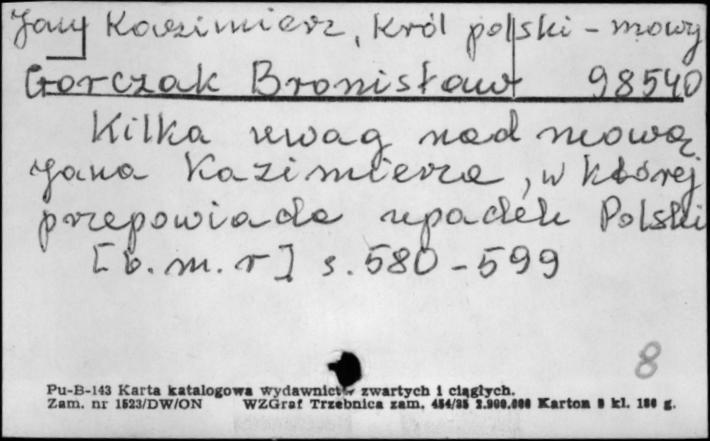 Jan Kazimierz, król polski - mowy
Gorczak Bronisław 98540
Kilka uwag nad mową
Jana Kazimierza, w której
przepowiada upadek Polski
[b.m.r] s. 580-599
8
Pu-B-143 Karta katalogowa wydawnictw zwartych i ciągłych.
Zam. nr 1523/DW/ON WZGraf Trzebnica zam. 454/85 2.900.000 Karton kl. g.